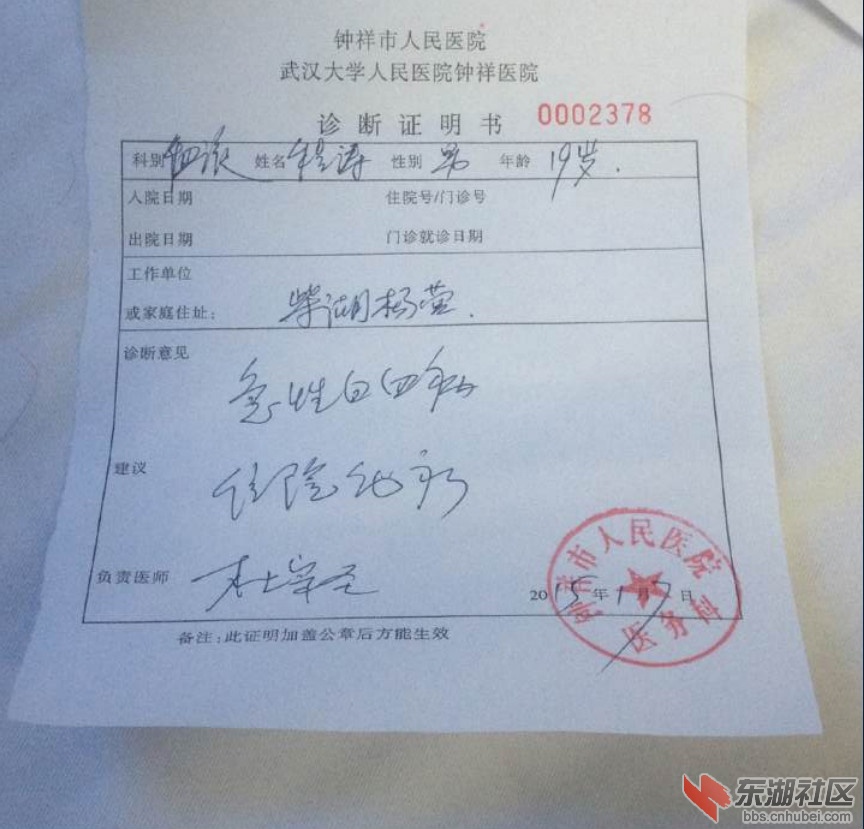 钟祥市人民医院
武汉大学人民医院钟祥医院
诊断证明书 0002378
科别 血液 姓名 程涛 性别 男 年龄 19岁.
入院日期 住院号/门诊号
出院日期 门诊就诊日期
工作单位
或家庭住址: 柴湖杨营.
诊断意见
急性白血病
建议
住院化疗
负责医师
2015年1月7日
钟祥市人民医院
医务科
备注:此证明加盖公章后方能生效
东湖社区
bbs.cnhubei.com